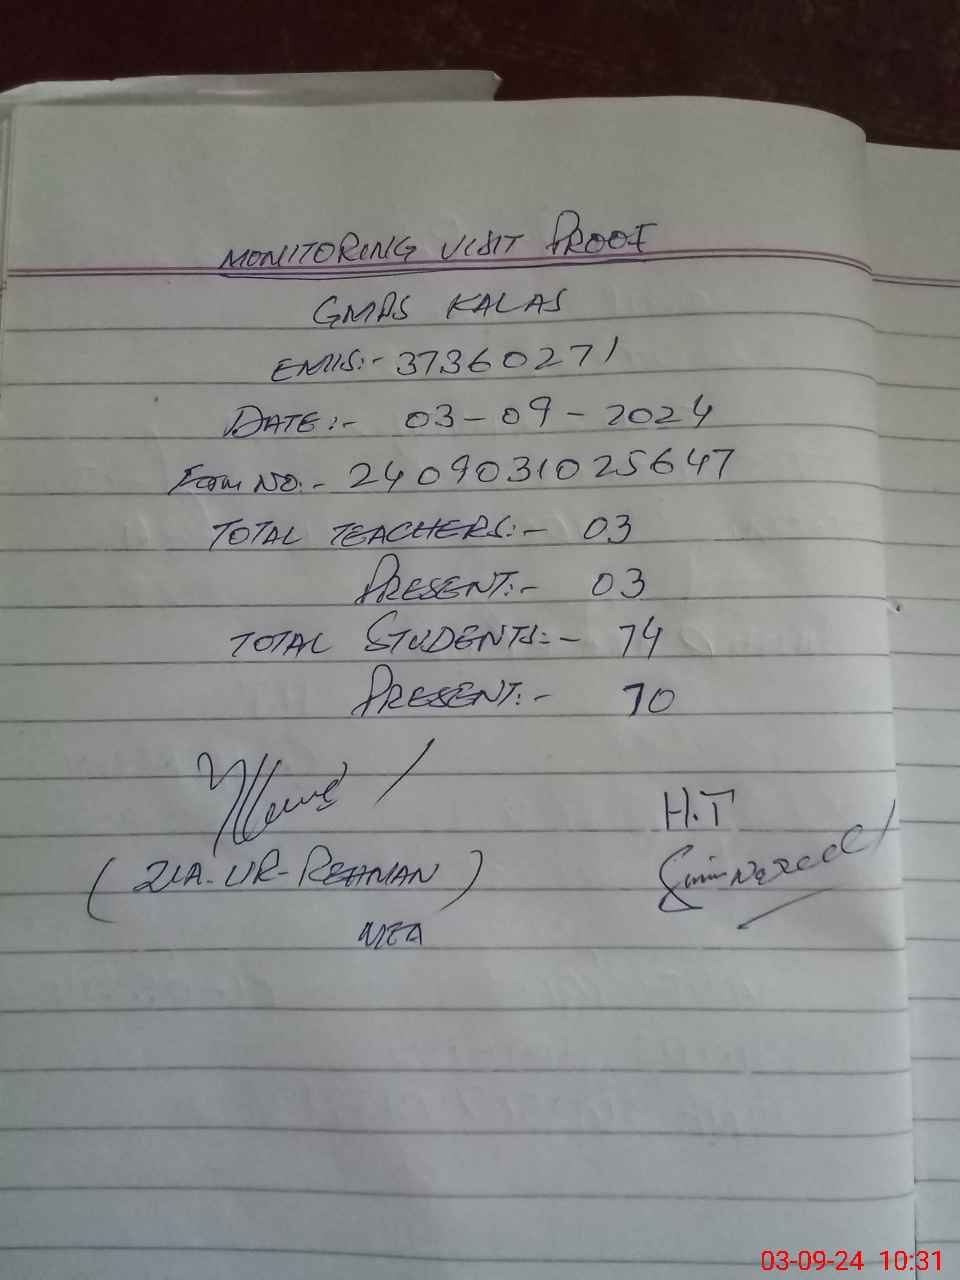 MONITORING VISIT PROOF
GMPS KALAS
EMIS:- 37360271
DATE:- 03-09-2024
Form No:- 2409031025647
TOTAL TEACHERS:- 03
PRESENT:- 03
TOTAL STUDENTS:- 74
PRESENT:- 70
H.T
(ZIA-UR-REHMAN)
MEA
03-09-24 10:31